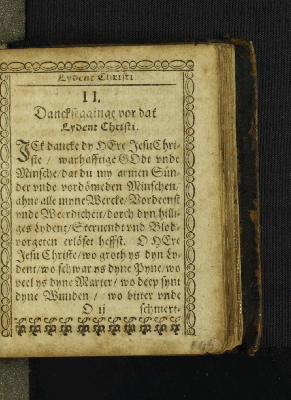 Lydent Christi
II.
Dancksegginge vor dat
Lydent Christi.
JCk dancke dy HEre JesuChri-
ste / warhafftige GOdt vnde
Minsche/dat du my armen Sün-
der vnde vordömeden Minschen/
ahne alle myne Wercke/Vordeenst
vnde Weerdicheit/dorch dyn hilli-
ges Lydent/Steruendt vnd Blod-
vorgeten erlöset heffst. O HEre
Jesu Christe/wo groth ys dyn Ly-
dent/wo schwar ys dyne Pyne/wo
veel ys dyne Marter/wo deep synt
dyne Wunden / wo bitter vnde
O ij schmert-
105